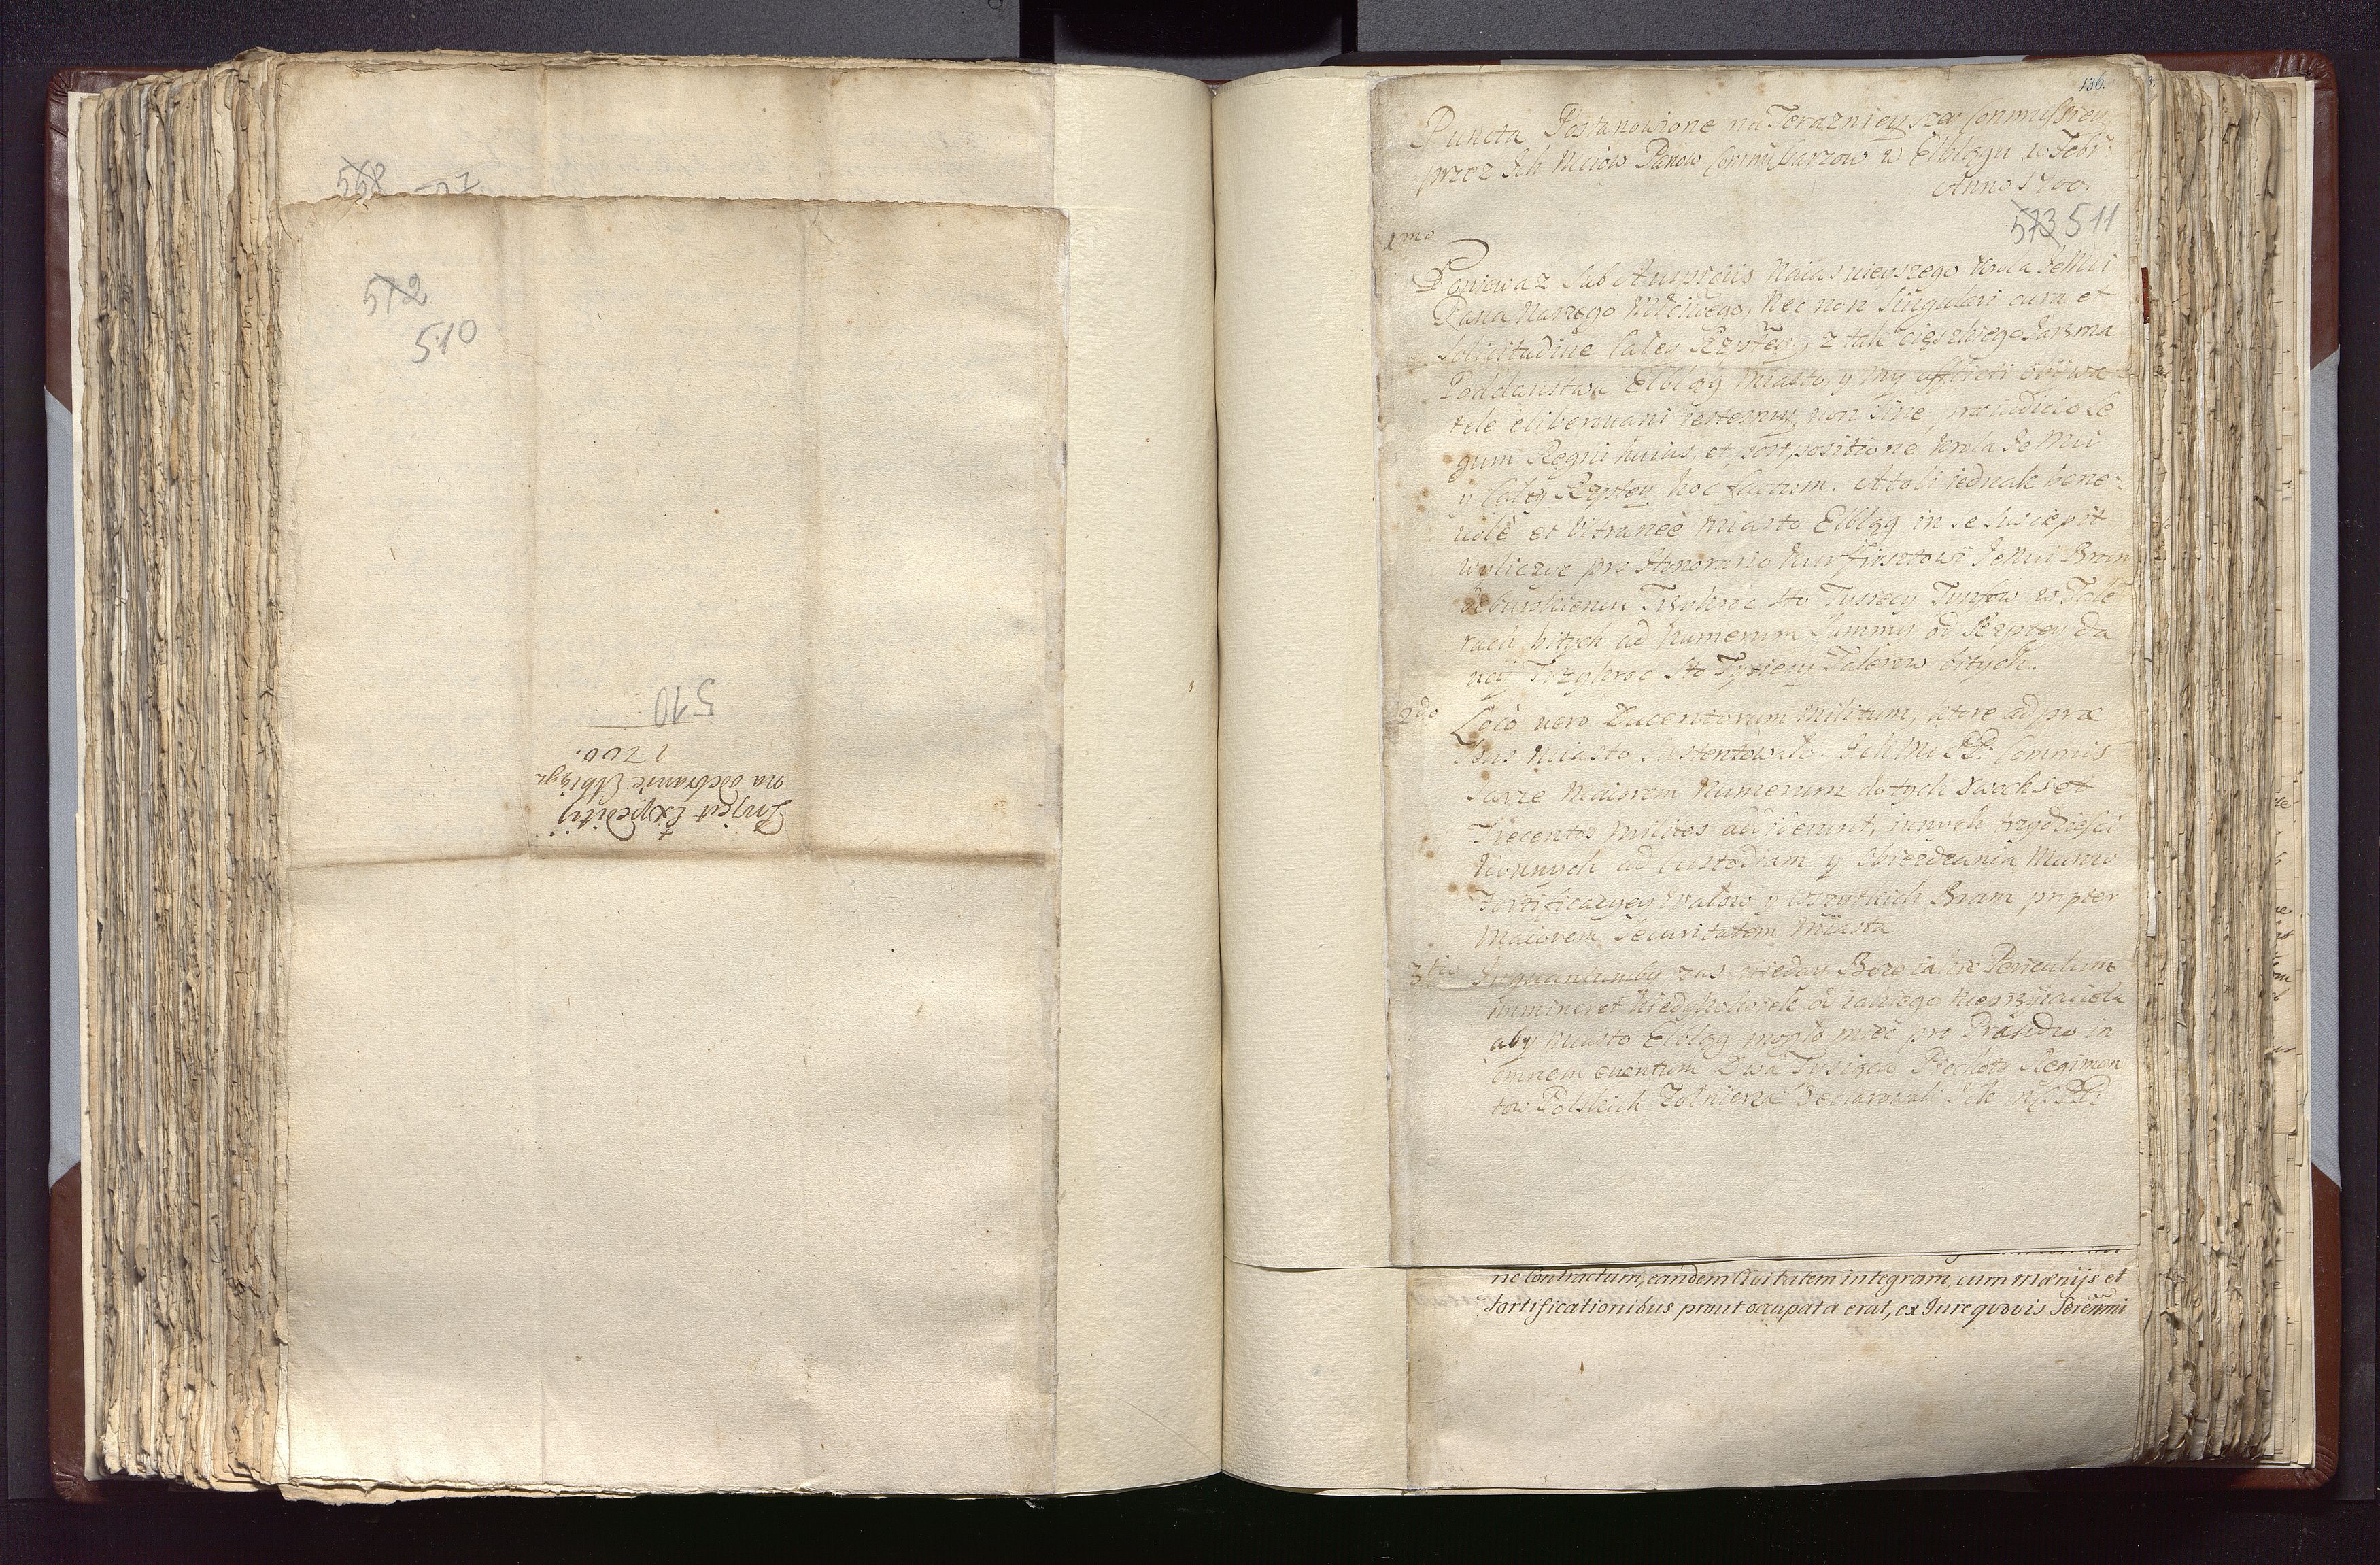 568
572
510
510
Project Expeditij
na odebranie Elbiąga
1700.
136.
Puncta Postanowione na Terazniejszey Commissiey
przez Ich Mciow Panow Commissarzow w Elblągu w Febr:
Anno 1700.
573 511
1mo
Poniewaz sub Auspiciis Naiasnieyszego Krola Je Mci
Pana Naszego Mciwego, nec non singulari cura et
solicitudine Całey Rzptey, z tak cięszkiego Jarzma
Poddanstwa Elbląg Miasto, y my afflicti obywa
tele eliberowani iestesmy, non sine praeiudicio Le
gum Regni huius, et postpositione Krola Je Mci
y Całey Rzptey hoc factum. Atoli iednak bene-
uolè et Vltraneè Miasto Elbląg in se suscepit
wyliczyc pro Honorario Kurfirsztowi Je Mci Bran
deburskiemu Trzykroc sto Tysięcy Tynfow w Tale
rach bitych ad numerum Summy od Rzptey da
ney Trzykroc sto Tysięcy Talerow bitych.
2do
Loco uero Ducentorum Militum, ktore ad præ
sens Miasto sustentowało. Ich Mc PP. Commis
sarze Maiorem Numerum do tych dwochset
Trecentos Milites adiiciunt, innych trzydziesci
Konnych ad Custodiam y Obiezdzania Murow
Fortificacyey Wałow y wszytkich Bram propter
Maiorem Securitatem Miasta
3tio
Inquantumby zas nieday Boze iakie Periculum
immineret kiedyzkolwiek od iakiego Nieprzyiaciela
aby Miasto Elbląg mogło miec pro Præsidio in
omnem euentum Dwa Tysiąca Piechoty Regimen
tow Polskich Zołnierza deklarowali Ich Mc PP.
ne Contractum, eandem Civitatem integram, cum mænijs et
fortificationibus prout occupata erat, ex Jure quovis Serenmi